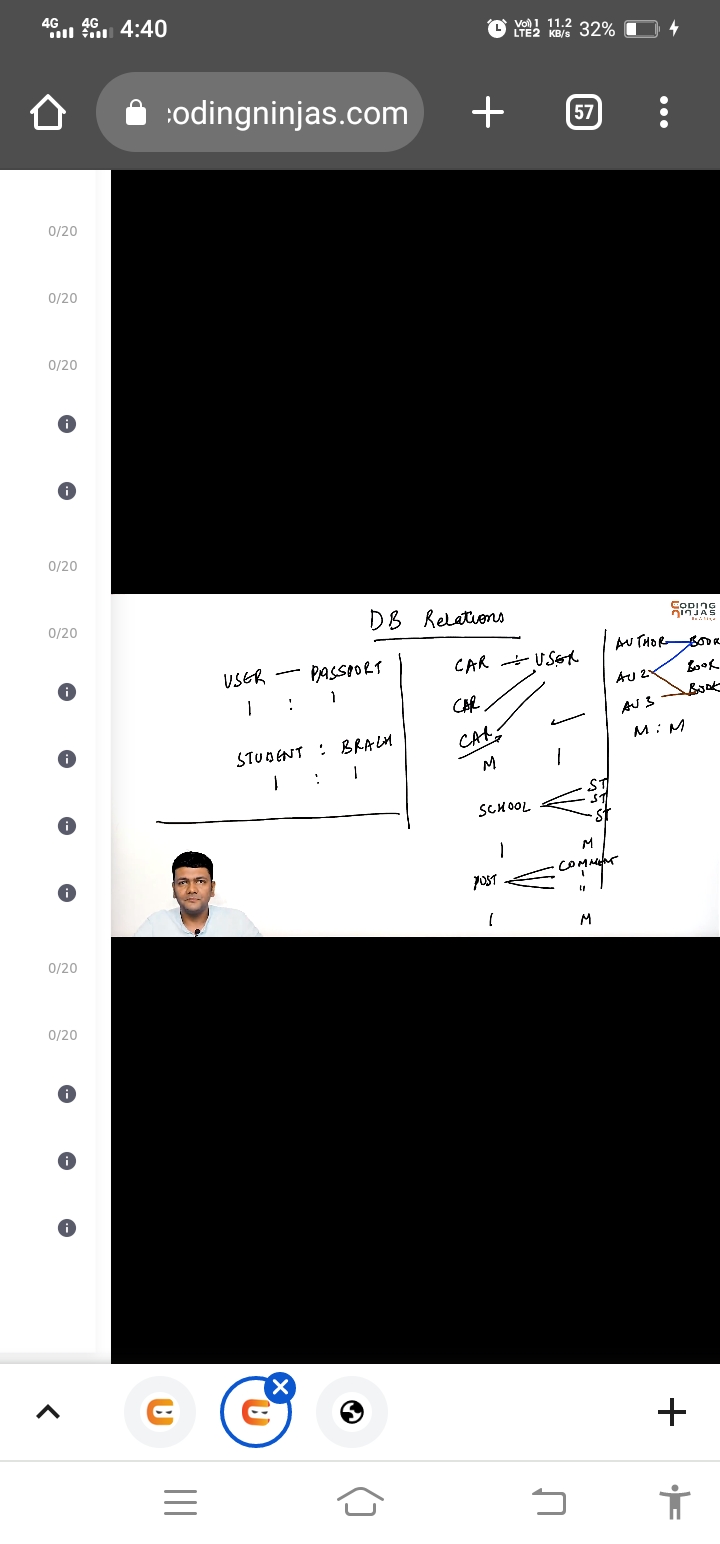 4G 4G 4:40
Vo)) 1 LTE2 11.2 KB/s 32%
codingninjas.com
57
0/20
0/20
0/20
0/20
0/20
0/20
0/20
DB Relations
CODING NINJAS
USER — PASSPORT
1 : 1
STUDENT : BRANCH
1 : 1
CAR ÷ USER
CAR
CAR
M 1
SCHOOL
ST
ST
ST
1 M
POST
COMMENT
"
1 M
AUTHOR BOOK
AU 2 BOOK
AU 3 BOOK
M : M